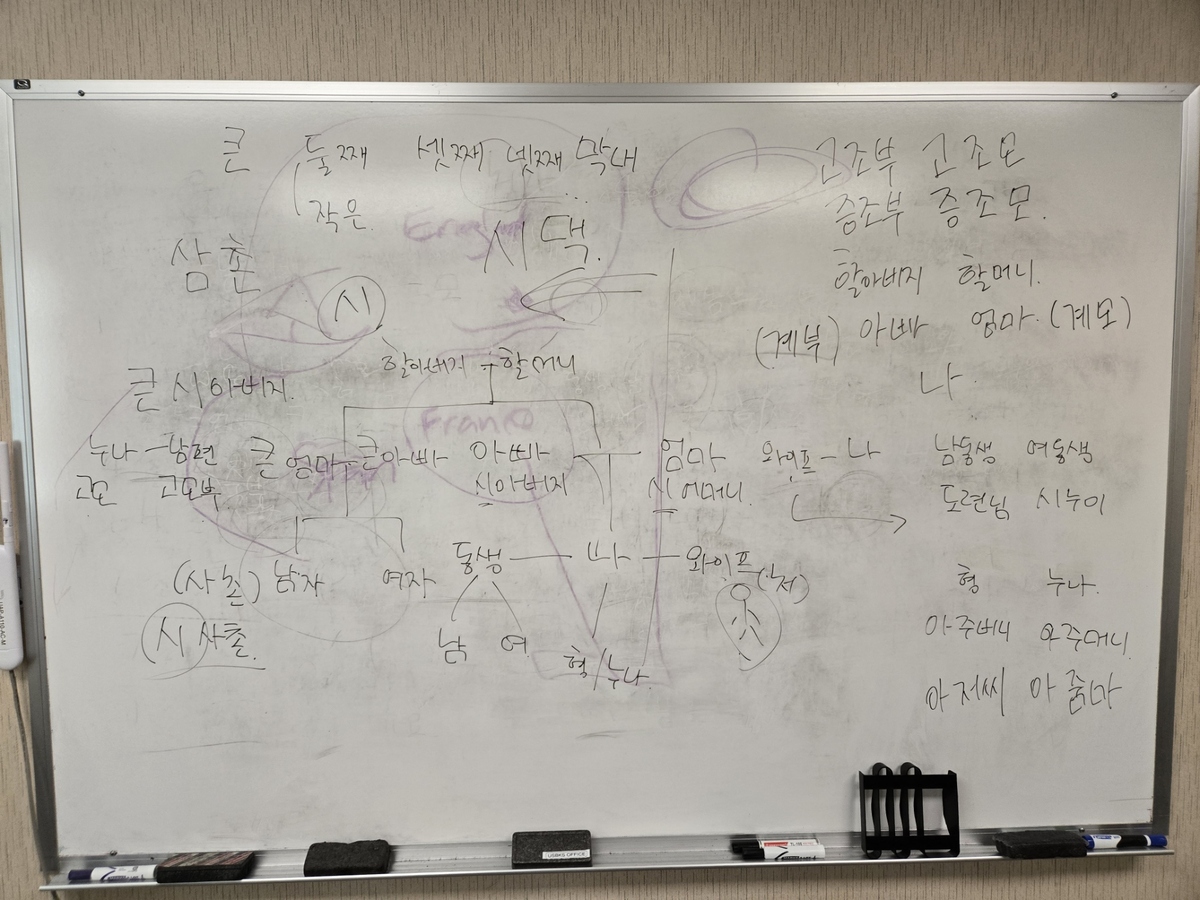 큰 둘째 셋째 넷째 막내
작은
시댁.
삼촌
시
할아버지 - 할머니
큰 시아버지.
누나 - 남편 큰 엄마 - 큰아빠 아빠 엄마
고모 고모부 시아버지 시어머니.
(사촌) 남자 여자 동생 나 와이프
시 사촌.
남 여 형/누나.
고조부 고조모
증조부 증조모.
할아버지 할머니.
(계부) 아빠 엄마 (계모)
나.
와이프 - 나 남동생 여동생
도련님 시누이
형 누나.
아주버니 아주머니.
아저씨 아줌마
Franko
USBKS OFFICE